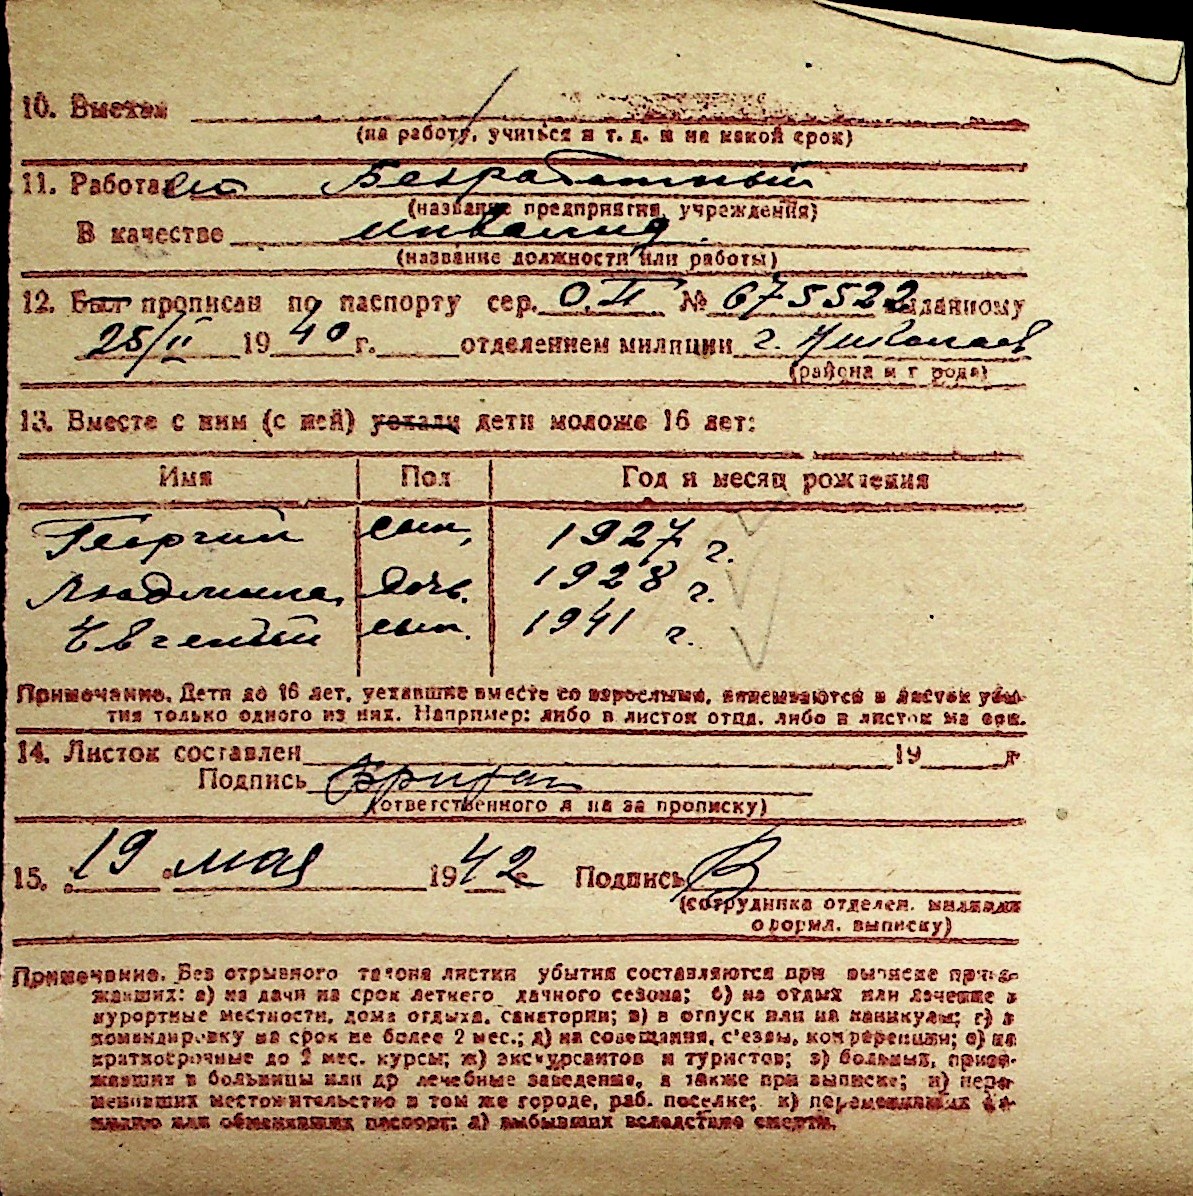 10. Выехал
(на работу, учиться и т. д. и на какой срок)
11. Работает Безработный
(название предприятия, учреждения)
В качестве инвалид.
(название должности или работы)
12. Был прописан по паспорту сер. О.II № 675522 выданному
25/II 1940 г. отделением милиции г. Николаев
(района и города)
13. Вместе с ним (с ней) уехали дети моложе 16 лет:
Имя Пол Год и месяц рождения
Георгий сын, 1927 г.
Людмила, дочь. 1928 г.
Евгений сын. 1941 г.
Примечание. Дети до 16 лет, уехавшие вместе со взрослыми, вписываются в листок убы-
тия только одного из них. Например: либо в листок отца, либо в листок матери.
14. Листок составлен 19 г.
Подпись
(ответственного лица за прописку)
15. 19 мая 1942 Подпись
(сотрудника отделен. милиции
оформл. выписку)
Примечание. Без отрывного талона листки убытия составляются при выписке приез-
жавших: а) на дачи на срок летнего дачного сезона; б) на отдых или лечение в
курортные местности, дома отдыха, санатории; в) в отпуск или на каникулы; г) в
командировку на срок не более 2 мес.; д) на совещания, с'езды, конференции; е) на
краткосрочные до 2 мес. курсы; ж) экскурсантов и туристов; з) больных, приез-
жавших в больницы или др лечебные заведения, а также при выписке; и) пере-
менивших местожительство в том же городе, раб. поселке; к) переменивших фа-
милию или обменявших паспорт; л) выбывших вследствие смерти.